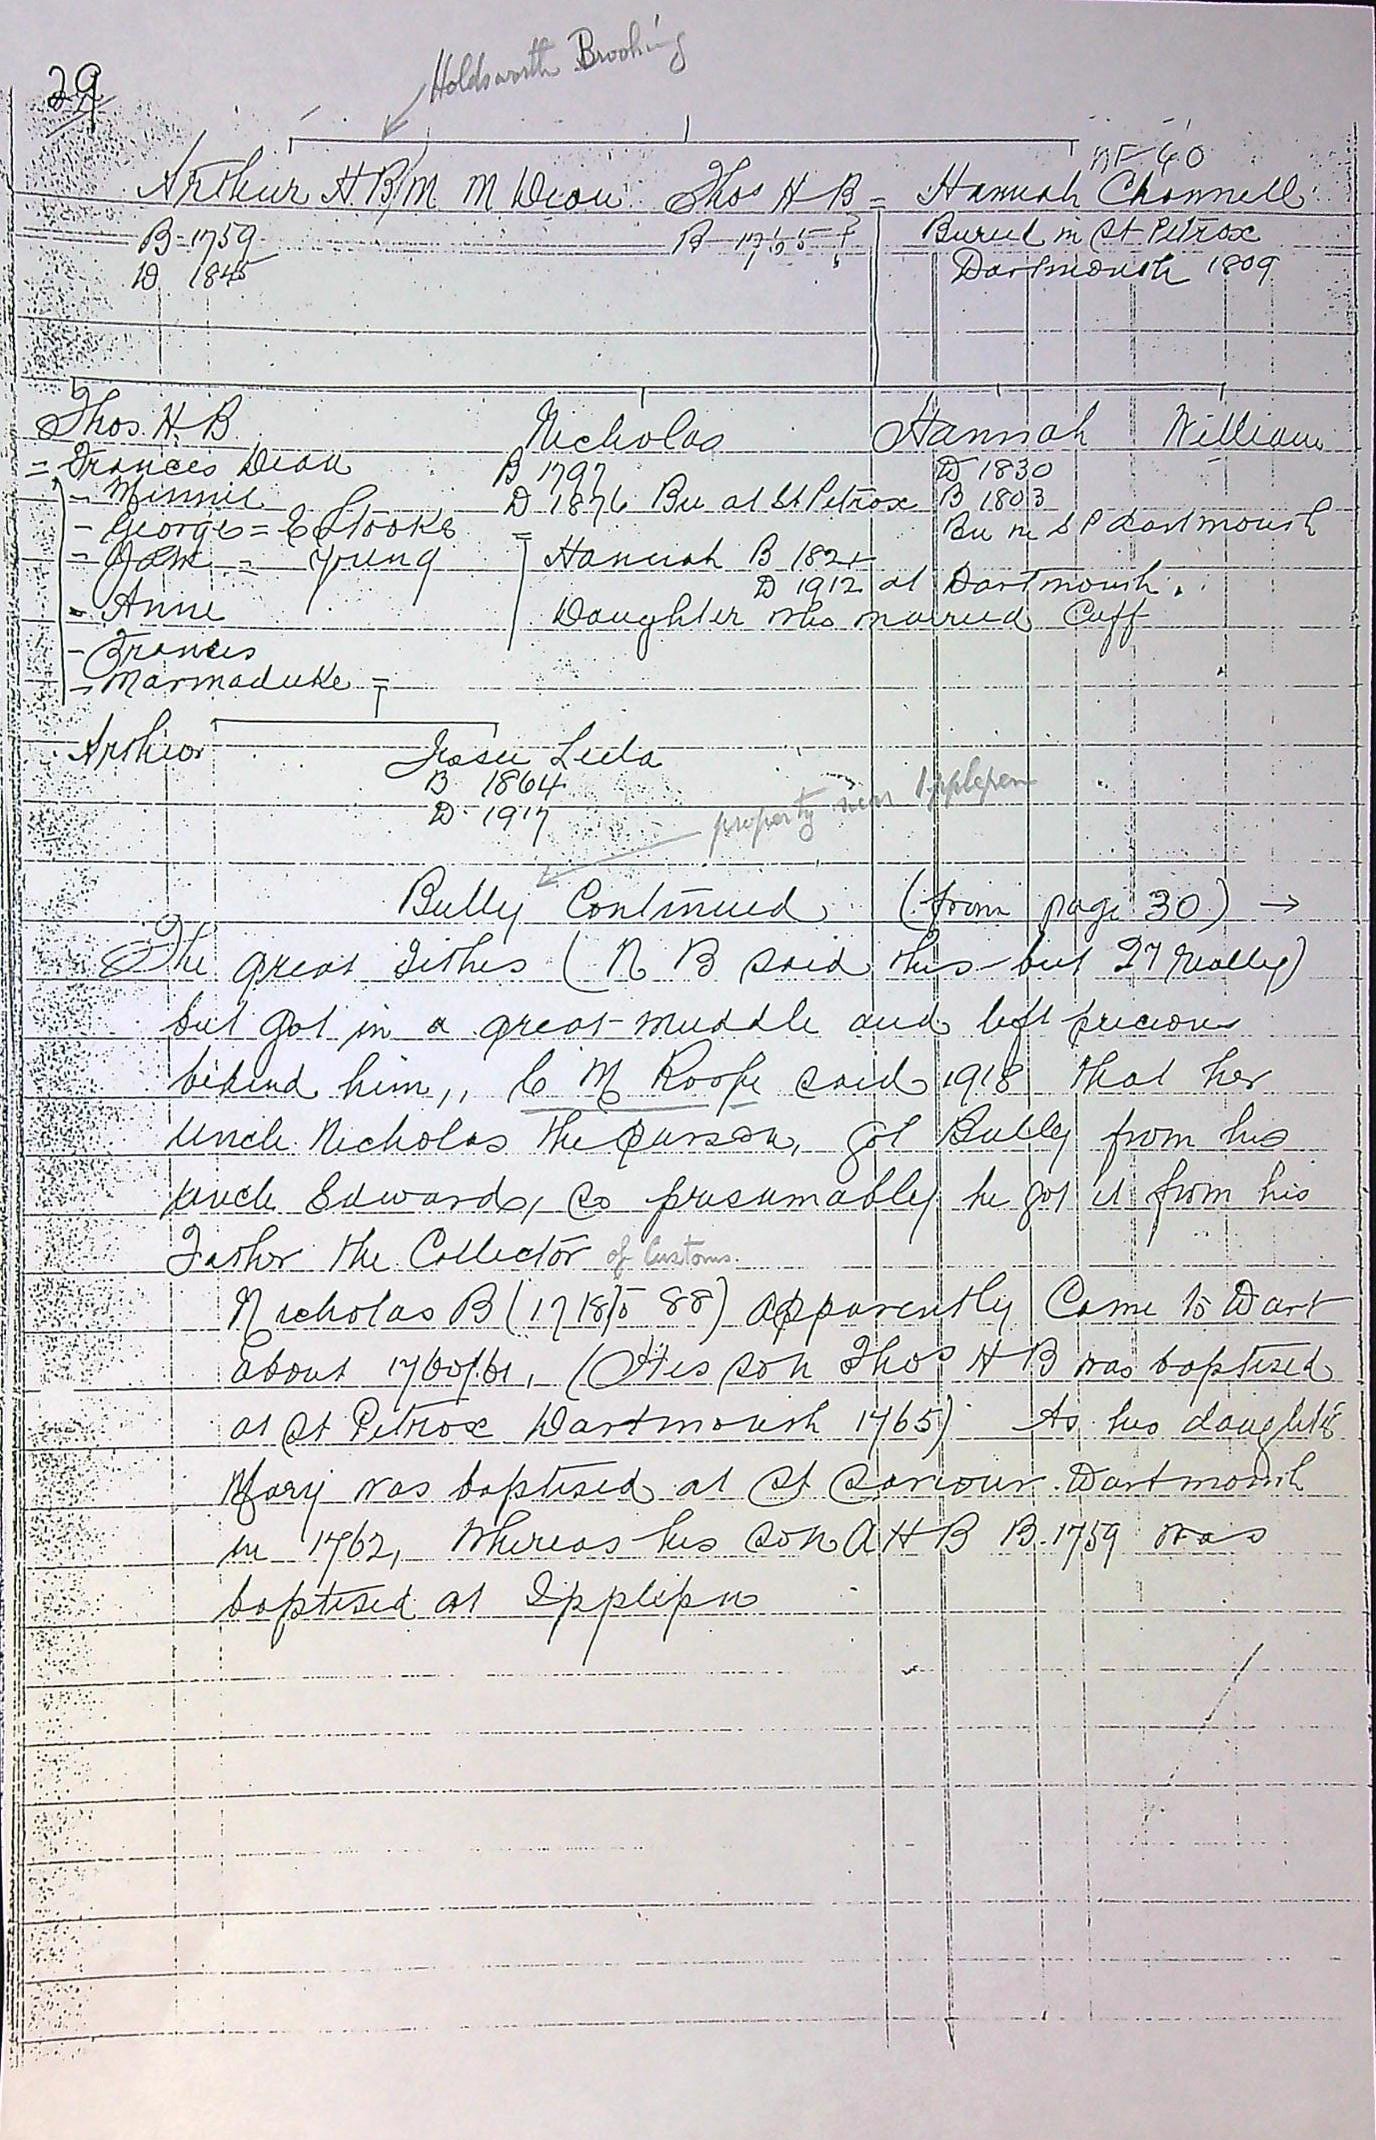 29
Holdsworth Brooking
Arthur H.B. M M Dean Thos H B = Hannah Channell
B-1759 B-1765 ? Buried in St Petrox
D 1845 Dartmouth 1809
Thos. H. B. Nicholas Hannah William
= Frances Dean B 1797 D 1830
- Minnie D 1876 Bu at St Petrox B 1803
- George = E Stooke Bu in S P Dartmouth
- = Young = Hannah B 1824
D 1912 at Dartmouth.
- Anne Daughter who married Cuff
- Frances
- Marmaduke =
Arthur Leila
B 1864
D 1917
property near Ipplepen
Bully Continued (from page 30) →
The great Tithes (N B said this - but really)
but got in a great muddle and left precious
behind him,, C M Roope said 1918 that her
Uncle Nicholas the parson, got Bully from his
uncle Edward, so presumably he got it from his
Father the Collector of Customs.
Nicholas B (1718 to 88) apparently Came to Dart
about 1760/61, (His son Thos H B was baptised
at St Petrox Dartmouth 1765) As his daughter
Mary was baptised at St Saviour Dartmouth
in 1762, Whereas his son A H B B.1759 was
baptised at Ipplipn